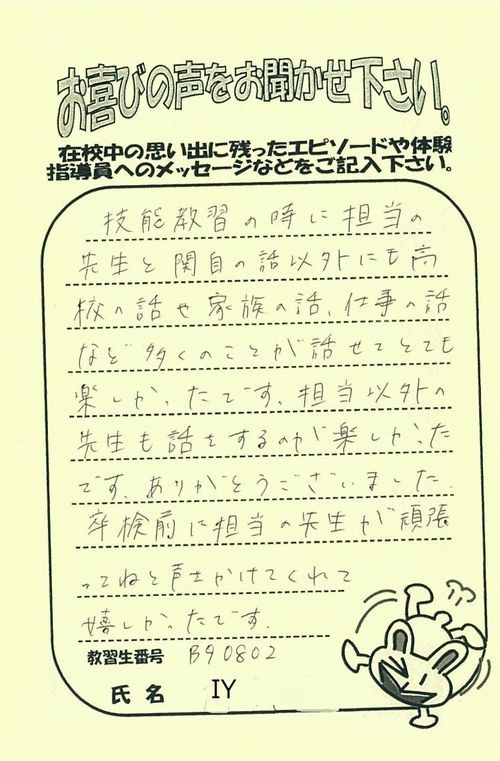 お喜びの声をお聞かせ下さい。
在校中の思い出に残ったエピソードや体験
指導員へのメッセージなどをご記入下さい。
技能教習の時に担当の
先生と関自の話以外にも高
校の話や家族の話、仕事の話
など多くのことが話せてとても
楽しかったです。担当以外の
先生も話をするのが楽しかった
です。ありがとうございました。
卒検前に担当の先生が頑張
ってねと声をかけてくれて
嬉しかったです。
教習生番号 B90802
氏名 IY